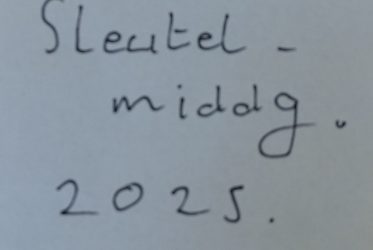 Sleutel -
middg.
2025.